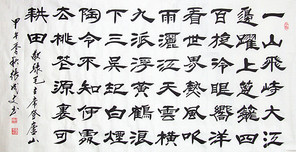 一山飛峙大江
邊躍上葱蘢四
百旋冷眼向洋
看世界熱風吹
雨灑江天雲橫
九派浮黃鶴浪
下三吳起白煙
陶令不知何處
去桃花源裏可
耕田 敬錄毛主席登廬山
甲午秋張書